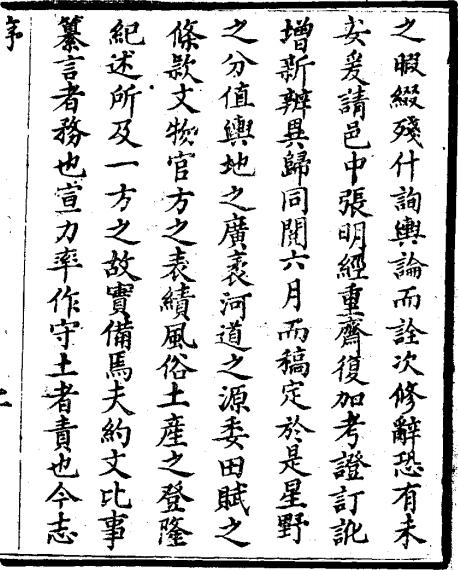 之暇綴殘什詢輿論而詮次修辭恐有未
安爰請邑中張明經重齋復加考證訂訛
增新辨異歸同閱六月而稿定於是星野
之分值輿地之廣袤河道之源委田賦之
條款文物官方之表績風俗土產之登隆
紀述所及一方之故實備焉夫約文比事
纂言者務也宣力率作守土者責也今志
序